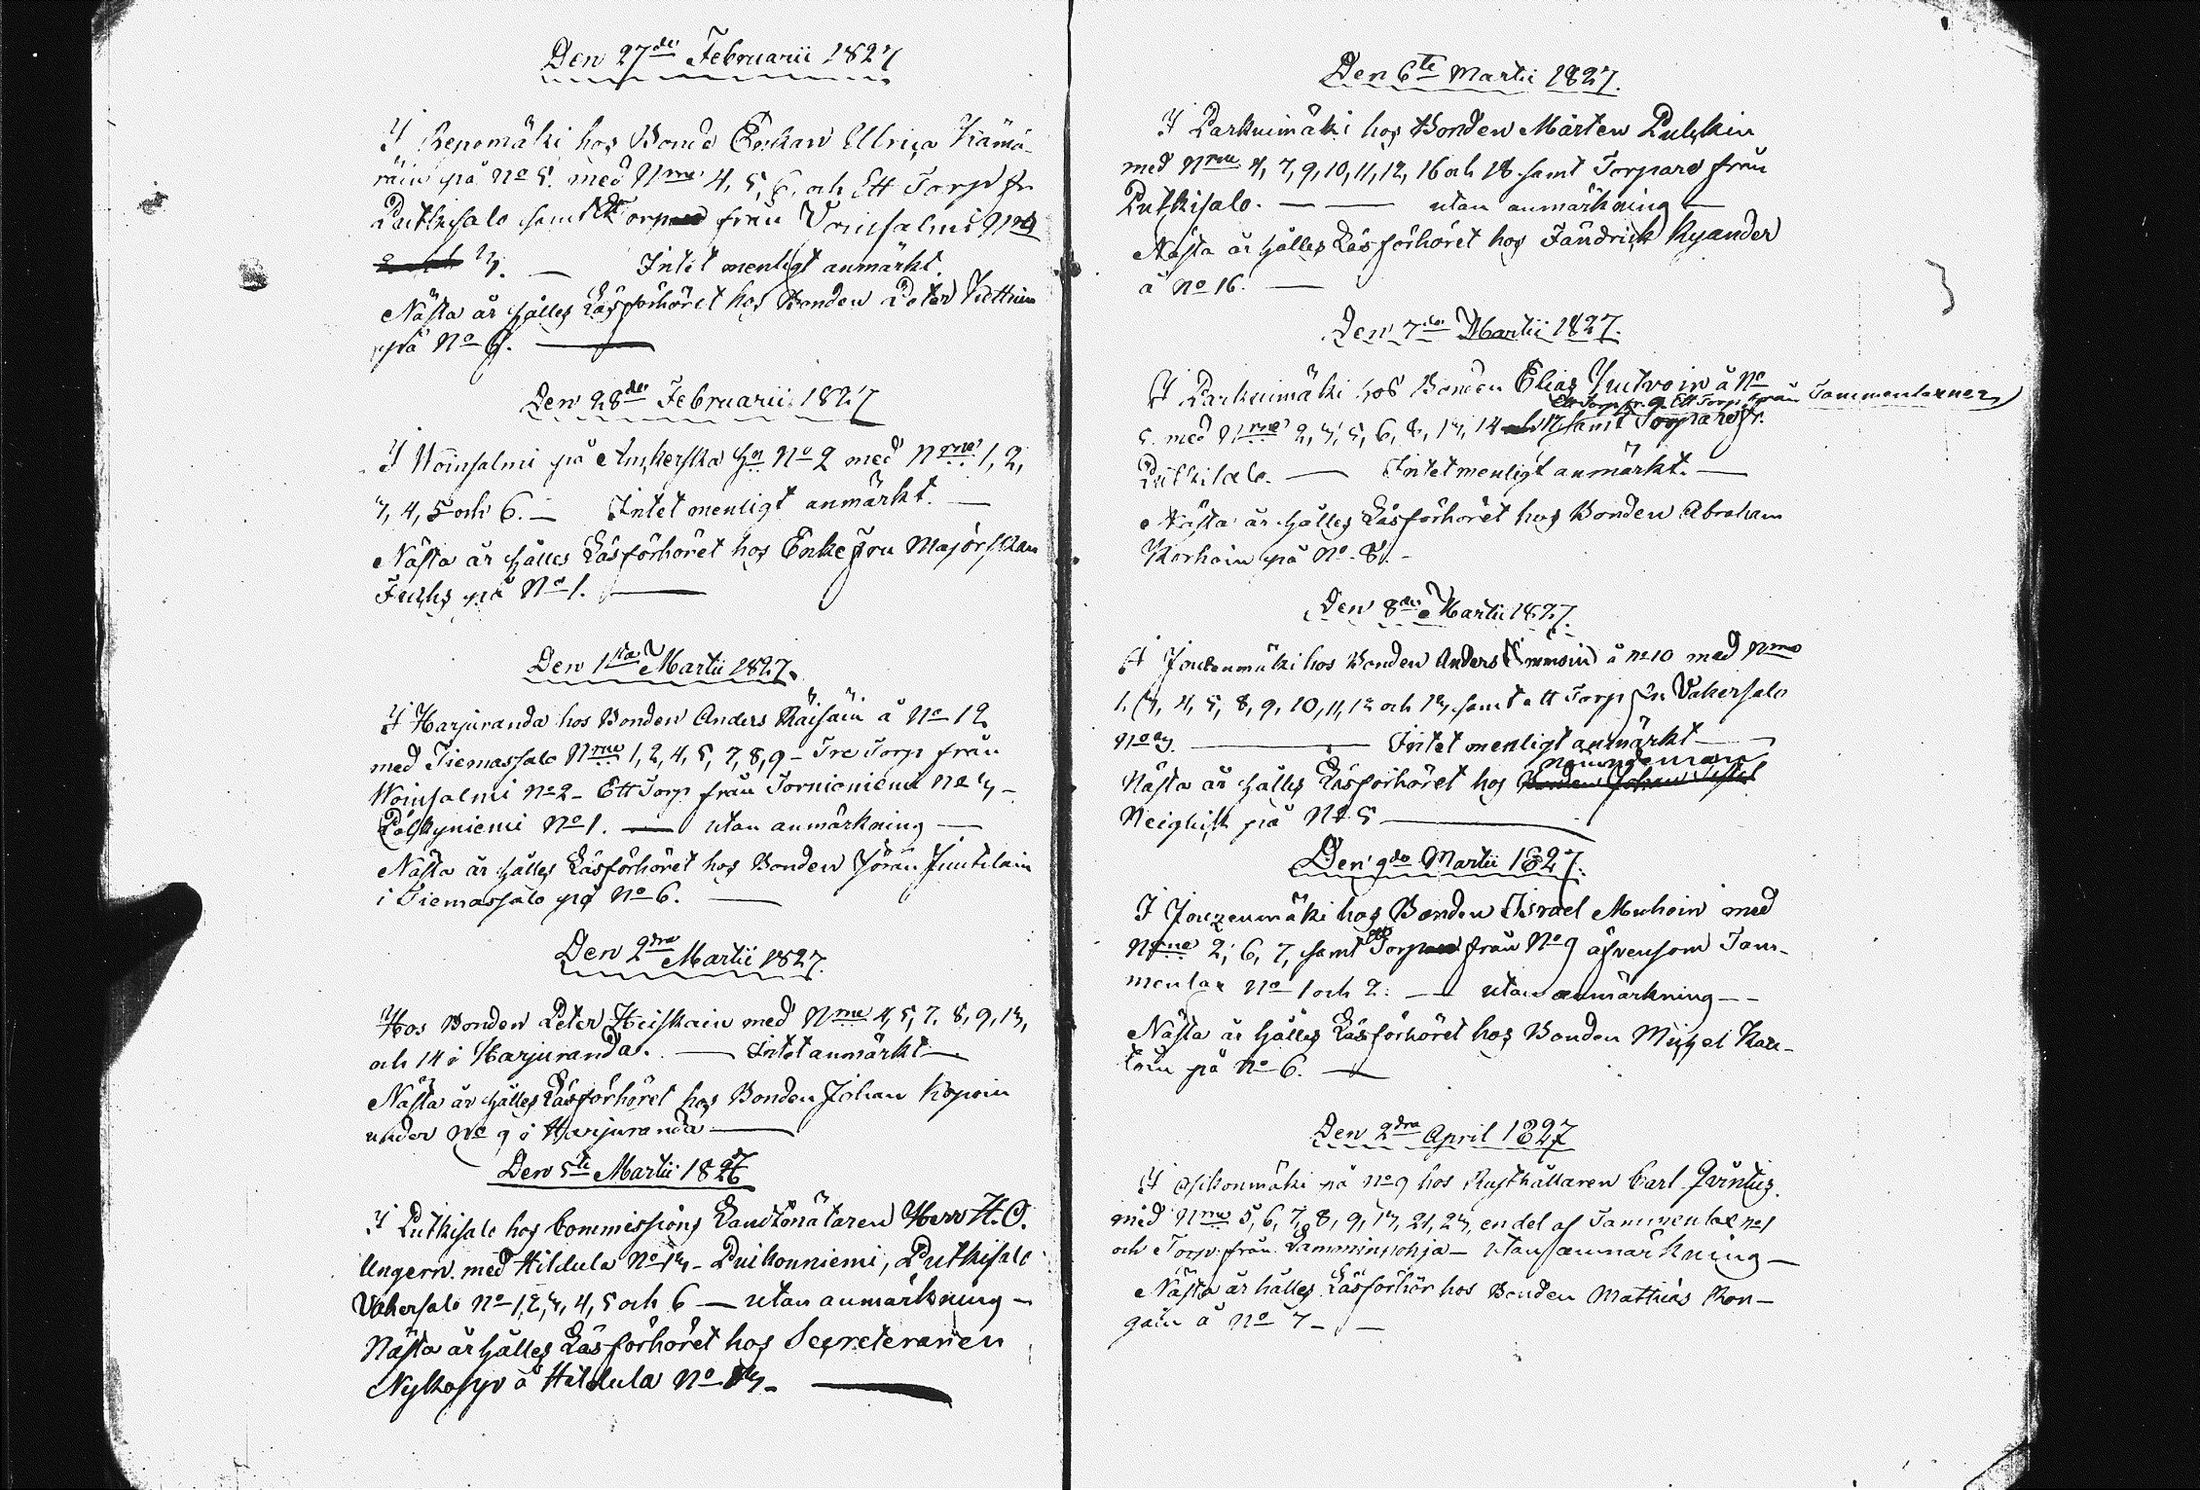 Den 27de Februarii 1827
I Repomäki hos Bonde Enkan Ulrica Hämä-
räin på No 5. med Nrne 4, 5, 6, och Ett Torp fr.
Putkisalo samt Ett Torp från Voinsalmi No
3. — Intet menligt anmärkt.
Nästa år hålles Läsförhöret hos Bonden Peter
på No 6. —
Den 28de Februarii 1827
I Woinsalmi på No 2 med Nrne 1, 2,
3, 4, 5 och 6. — Intet menligt anmärkt. —
Nästa år hålles Läsförhöret hos Enkefru Majorskan
Fuchs på No 1. —
Den 1sta Martii 1827.
I Harjuranda hos Bonden Anders Räisäin å No 12
med Tiemassalo Nrne 1, 2, 4, 5, 7, 8, 9 – Tre Torp från
Woinsalmi No 2 – Ett Torp från Tornioniemi No 3 –
Pölkyniemi No 1. — utan anmärkning —
Nästa år hålles Läsförhöret hos Bonden Jöran Juutilain
i Tiemassalo på No 6. —
Den 2dra Martii 1827.
Hos Bonden Peter Heiskain med Nrne 4, 5, 7, 8, 9, 13,
och 14 i Harjuranda. — Intet anmärkt —
Nästa år hålles Läsförhöret hos Bonden Johan Kopoin
under No 9 i Harjuranda —
Den 5te Martii 1827
I Putkisalo hos Commissions Landtmätaren Herr H. O.
Ungern. med Hildula No 13 – Puikonniemi, Putkisalo
Vahersalo No 1, 2, 3, 4, 5 och 6 — utan anmärkning –
Nästa år hålles Läsförhöret hos Secreteraren
Nykopp å Hildula No 13 – —
Den 6te Martii 1827.
I Parkuimäki hos Bonden Mårten Pulkkin
med Nrne 4, 7, 9, 10, 11, 12, 16 och 18 samt Torpare från
Putkisalo. — — utan anmärkning —
Nästa år hålles Läsförhöret hos Fändrick Kyander
å No 16. —
Den 7de Martii 1827.
I Parkuimäki hos Bonden Elias å No
Ett Torp fr. 9. Ett Torp från Tammenlaxner
5. med Nrne 2, 3, 5, 6, 8, 13, 14 och 17 samt Torpare fr.
Putkisalo. — Intet menligt anmärkt. —
Nästa år hålles Läsförhöret hos Bonden Abraham
Korhoin på No. 8. –
Den 8de Martii 1827.
I Joutzenmäki hos Bonden Anders Immoin å No 10 med Nrne
1, 3, 4, 5, 8, 9, 10, 11, 12 och 13, samt ett Torp fr. Vahersalo
No 3. — Intet menligt anmärkt —
Nämndeman
Nästa år hålles Läsförhöret hos Bonden Johan
Neiglick på No 5 —
Den 9de Martii 1827.
I Joutzenmäki hos Bonden Israel Muhoin med
Nrne 2, 6, 7, samt ett Torp från No 9 äfvensom Tam-
menlax No 1 och 2. — utan anmärkning – –
Nästa år hålles Läsförhöret hos Bonden Michel Kau-
toin på No 6. —
Den 2dra April 1827
I Asikonmäki på No 9 hos Rusthållaren Carl
med Nrne 5, 6, 7, 8, 9, 13, 21, 23, en del af Tammenlax No 1
och Torp från Lamminpohja – utan anmärkning —
Nästa år hålles Läsförhör hos Bonden Matthias Kon-
gain å No 7 – —